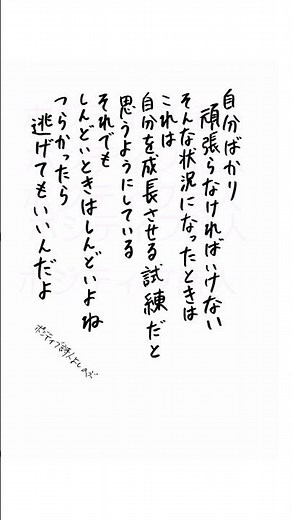 自分ばかり
頑張らなければいけない
そんな状況になったときは
これは
自分を成長させる試練だと
思うようにしている
それでも
しんどいときはしんどいよね
つらかったら
逃げてもいいんだよ
ポジティブ詩人よしのズ